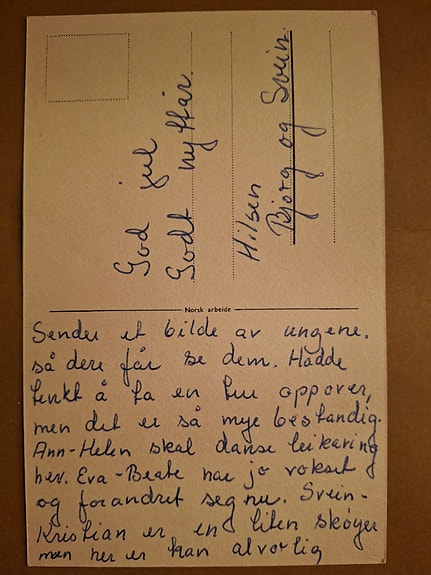 God jul
Godt nyttår.
Hilsen
Bjørg og Svein.
Norsk arbeide
Sender et bilde av ungene.
så dere får se dem. Hadde
tenkt å ta en tur oppover,
men det er så mye bestandig.
Ann-Helen skal danse leikaring
her. Eva-Beate har jo vokset
og forandret seg nu. Svein-
Kristian er en liten skøyer
men her er han alvorlig